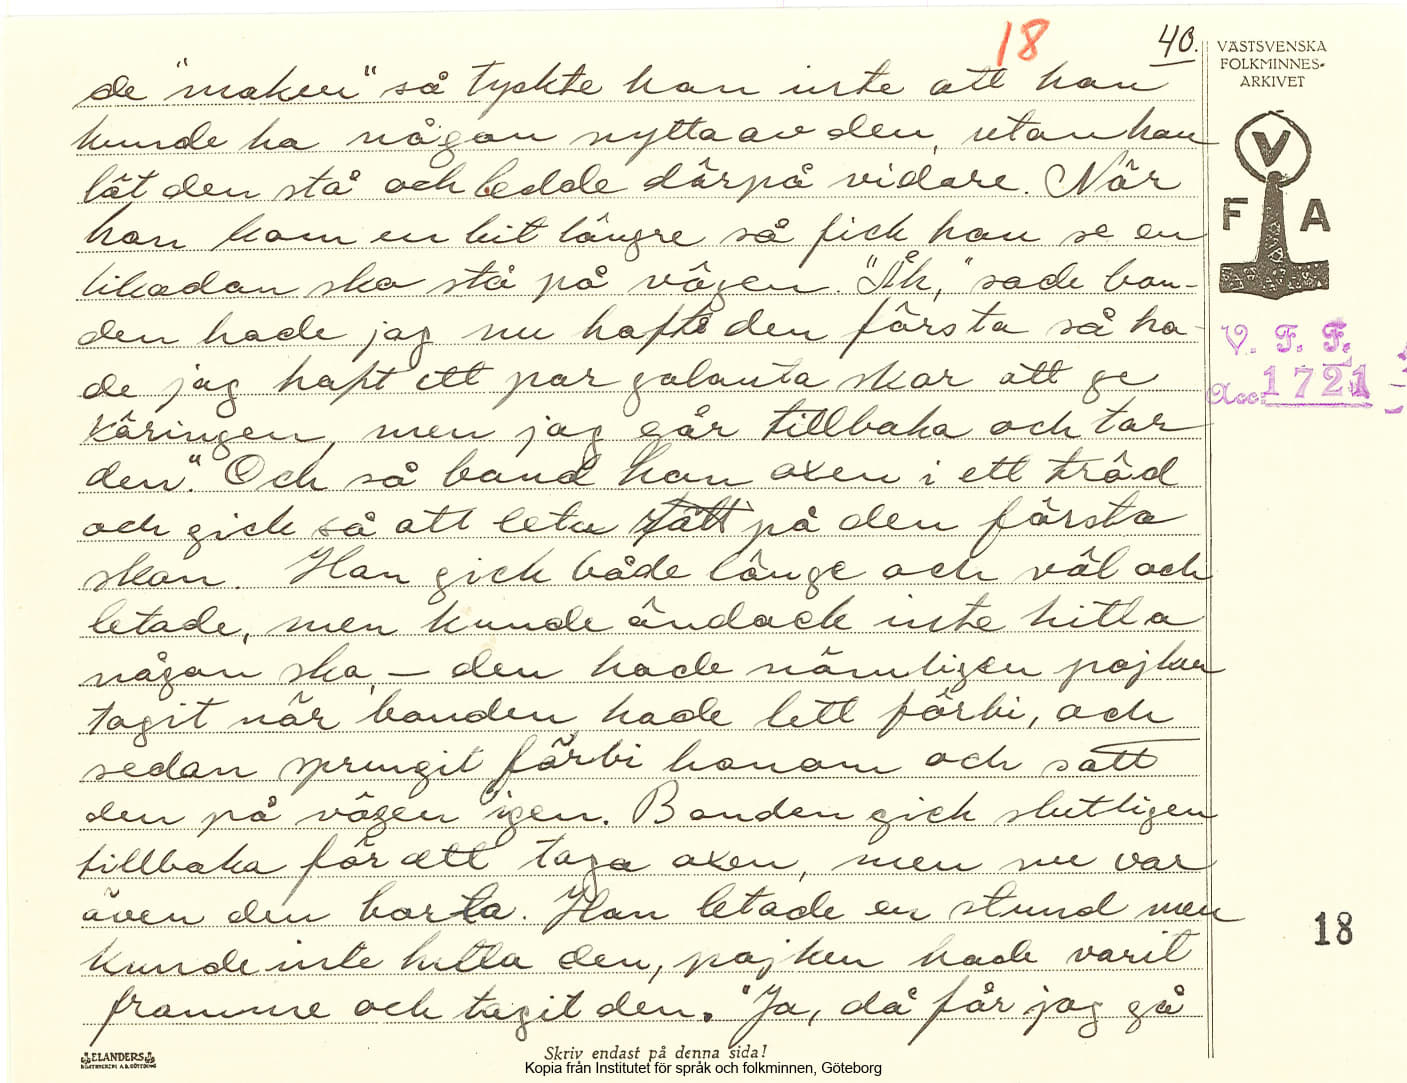 18
40.
de "maken" så tyckte han inte att han
kunde ha någon nytta av den, utan han
lät den stå och ledde därpå vidare. När
han kom en bit längre så fick han se en
likadan sko stå på vägen. "Åk," sade bon-
den hade jag nu haft den första så ha-
de jag haft ett par galanta skor att ge
käringen, men jag går tillbaka och tar
den." Och så band han oxen i ett träd
och gick så att leta rätt på den första
skon. Han gick både länge och väl och
letade, men kunde ändock inte hitta
någon sko, – den hade nämligen pojken
tagit när bonden hade lett förbi, och
sedan sprungit förbi honom och satt
den på vägen igen. Bonden gick slutligen
tillbaka för att taga oxen, men nu var
även den borta. Han letade en stund men
kunde inte hitta den, pojken hade varit
framme och tagit den. "Ja, då får jag gå
VÄSTSVENSKA
FOLKMINNES-
ARKIVET
V
F A
V. F. F.
Acc. 1721
18
ELANDERS
Skriv endast på denna sida!
Kopia från Institutet för språk och folkminnen, Göteborg